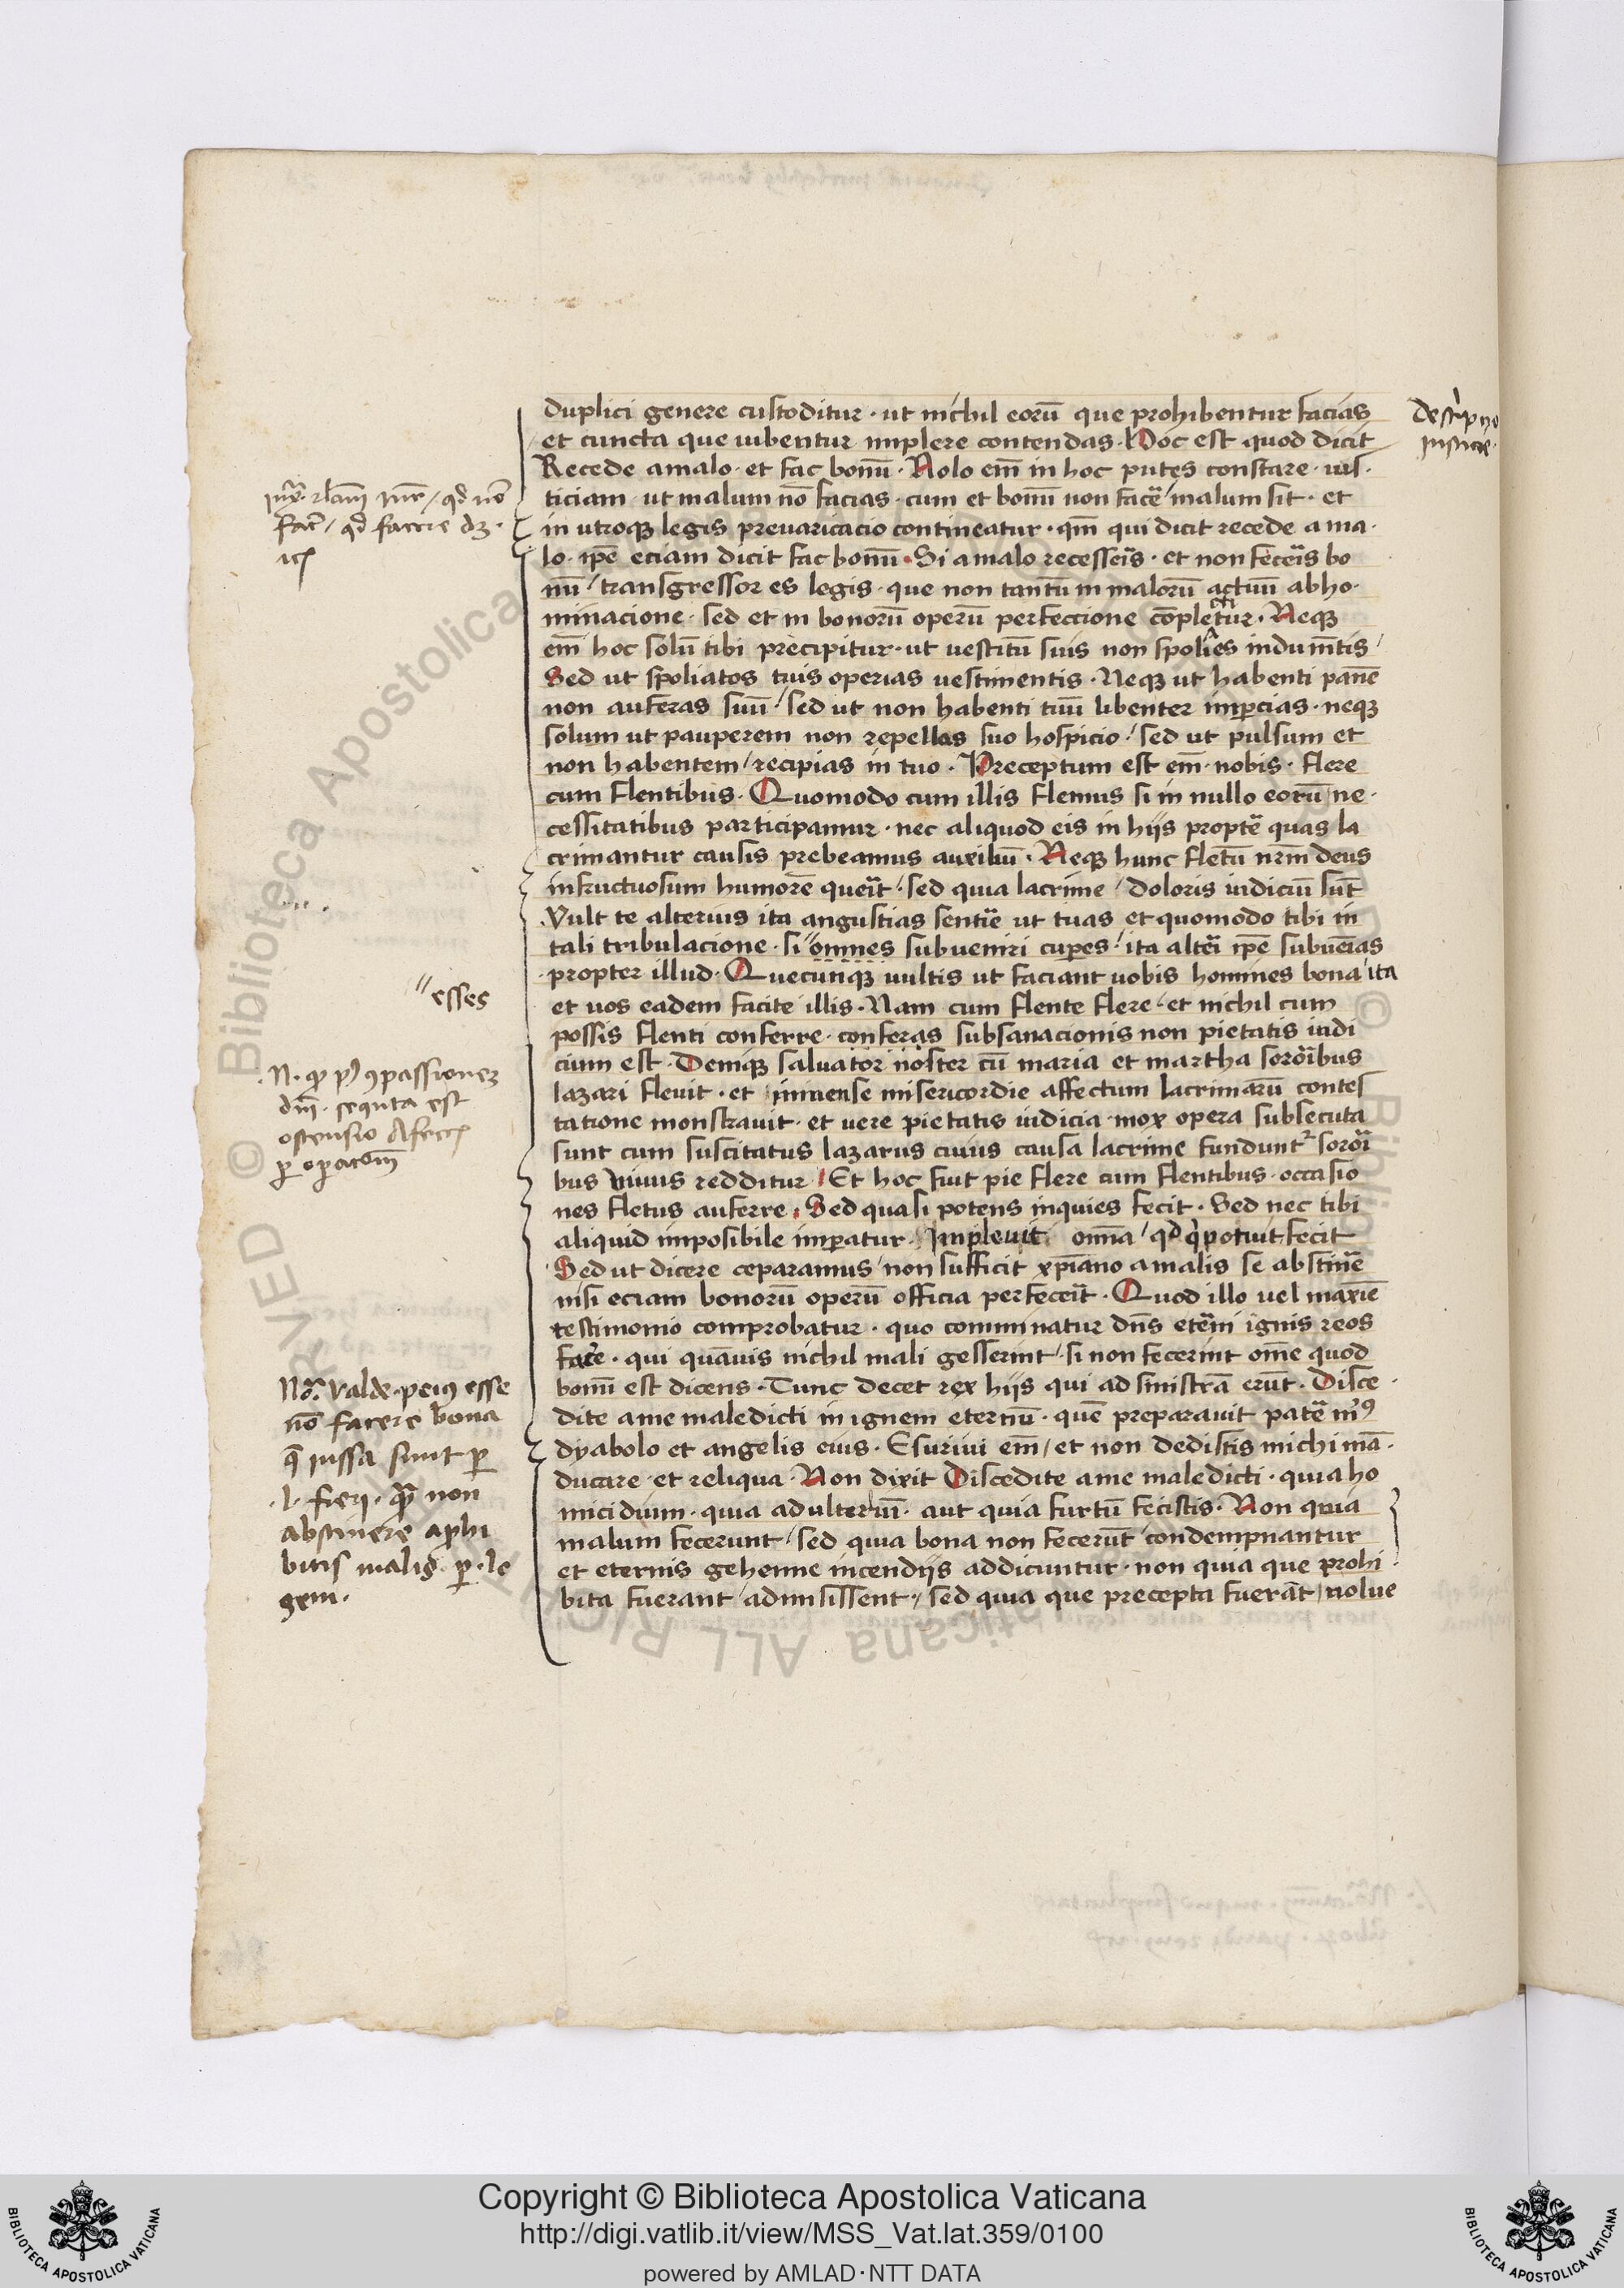 duplici genere custoditur · ut nichil eorū que prohibentur facias
et cuncta que iubentur implere contendas · Hoc est quod dicit
Recede a malo · et fac bonū · Nolo em̄ in hoc putes constare · ius·
ticiam · ut malum nō facias · cum et bonū non facē / malum sit · et
in utroqꝫ legis preuaricacio contineatur · qm̄ qui dicit recede a ma·
lo · ip̄e eciam dicit fac bonū · Si a malo recesseīs · et non feceīs bo
nū / transgressor es legis · que non tantū in malorū actuū abho·
minacione · sed et in bonorū operū perfeccione cōpletur · Neqꝫ
em̄ hoc solū tibi precipitur · ut uestitū suis non spolies indumētis /
Sed ut spoliatos tuis operias uestimentis · Neqꝫ ut habenti panē
non auferas suū / sed ut non habenti tuū libenter imꝑcias · neqꝫ
solum ut pauperem non repellas suo hospicio / sed ut pulsum et
non habentem / recipias in tuo · Preceptum est em̄ · nobis · flere
cum flentibus · Quomodo cum illis flemus si in nullo eorū ne·
cessitatibus participamur · nec aliquod eis in hijs proptē quas la
crimantur causis prebeamus auxiliū · Neqꝫ hunc fletū nr̄m deus
infructuosum humorē querit / sed quia lacrime / doloris indiciū sūt
Vult te alterius ita angustias sentiē ut tuas et quomodo tibi in
tali tribulacione · si "omnes subueniri cuꝑes / ita altēi ip̄e subueīas
propter illud · Quecunqꝫ uultis ut faciant uobis homines bona / ita
et uos eadem facite illis · Nam cum flente flere · et nichil cum
possis flenti conferre · conferas subsanacionis non pietatis iudi
cium est · Deniqꝫ saluator noster cū maria et martha soroībus
lazari fleuit · et inmense misericordie affectum lacrimarū contes
tatione monstrauit · et uere pietatis iudicia mox opera subsecuta
sunt cum suscitatus lazarus cuius causa lacrime fundunt² soroī
bus viuus redditur / Et hoc fuit pie flere cum flentibus · occasio
nes fletus auferre · Sed quasi potens inquies fecit · Sed nec tibi
aliquid imposibile imꝑatur · Impleuit om̄a / qd̄ potuit fecit
Sed ut dicere ceparamus / non sufficit xp̄iano a malis se abstinē
nisi eciam bonorū operū officia perfeceīt · Quod illo uel maxīe
testimonio comprobatur · quo comminatur dn̄s etēni ignis reos
facē · qui quāuis nichil mali gesserint / si non fecerint om̄e quod
bonū est dicens · Tunc decet rex hijs qui ad sinistrā erūt · Disce·
dite a me maledicti in ignem eternū · quē preparauit patē mꝰ
dyabolo et angelis eius · Esuriui em̄ / et non dedistis michi mā·
ducare · et reliqua · Non dixit Discedite a me maledicti · quia ho
micidium · quia adulteriū · aut quia furtū fecistis · Non quia
malum fecerunt / sed quia bona non fecerūt / condempnantur
et eternis gehenne incendijs addicuntur · non quia que prohi
bita fuerant / admisissent · / sed quia que precepta fuerāt / nolue
descripno
iusticie ·
"esses
· N · ꝙ pꝰ ꝯpassionez
dn̄i · sequta est
ostensio
ꝑ opatom̄
No · valde · peiꝰ esse
nō facere bona
q̄ iussa sunt ꝑ
· l · fieri · quā non
abstinere aphi
bitis malis · ꝑ · le
gem ·
© Biblioteca Apostolica Vaticana ALL RIGHTS RESERVED
Copyright © Biblioteca Apostolica Vaticana
http://digi.vatlib.it/view/MSS_Vat.lat.359/0100
powered by AMLAD·NTT DATA
BIBLIOTECA APOSTOLICA VATICANA
BIBLIOTECA APOSTOLICA VATICANA